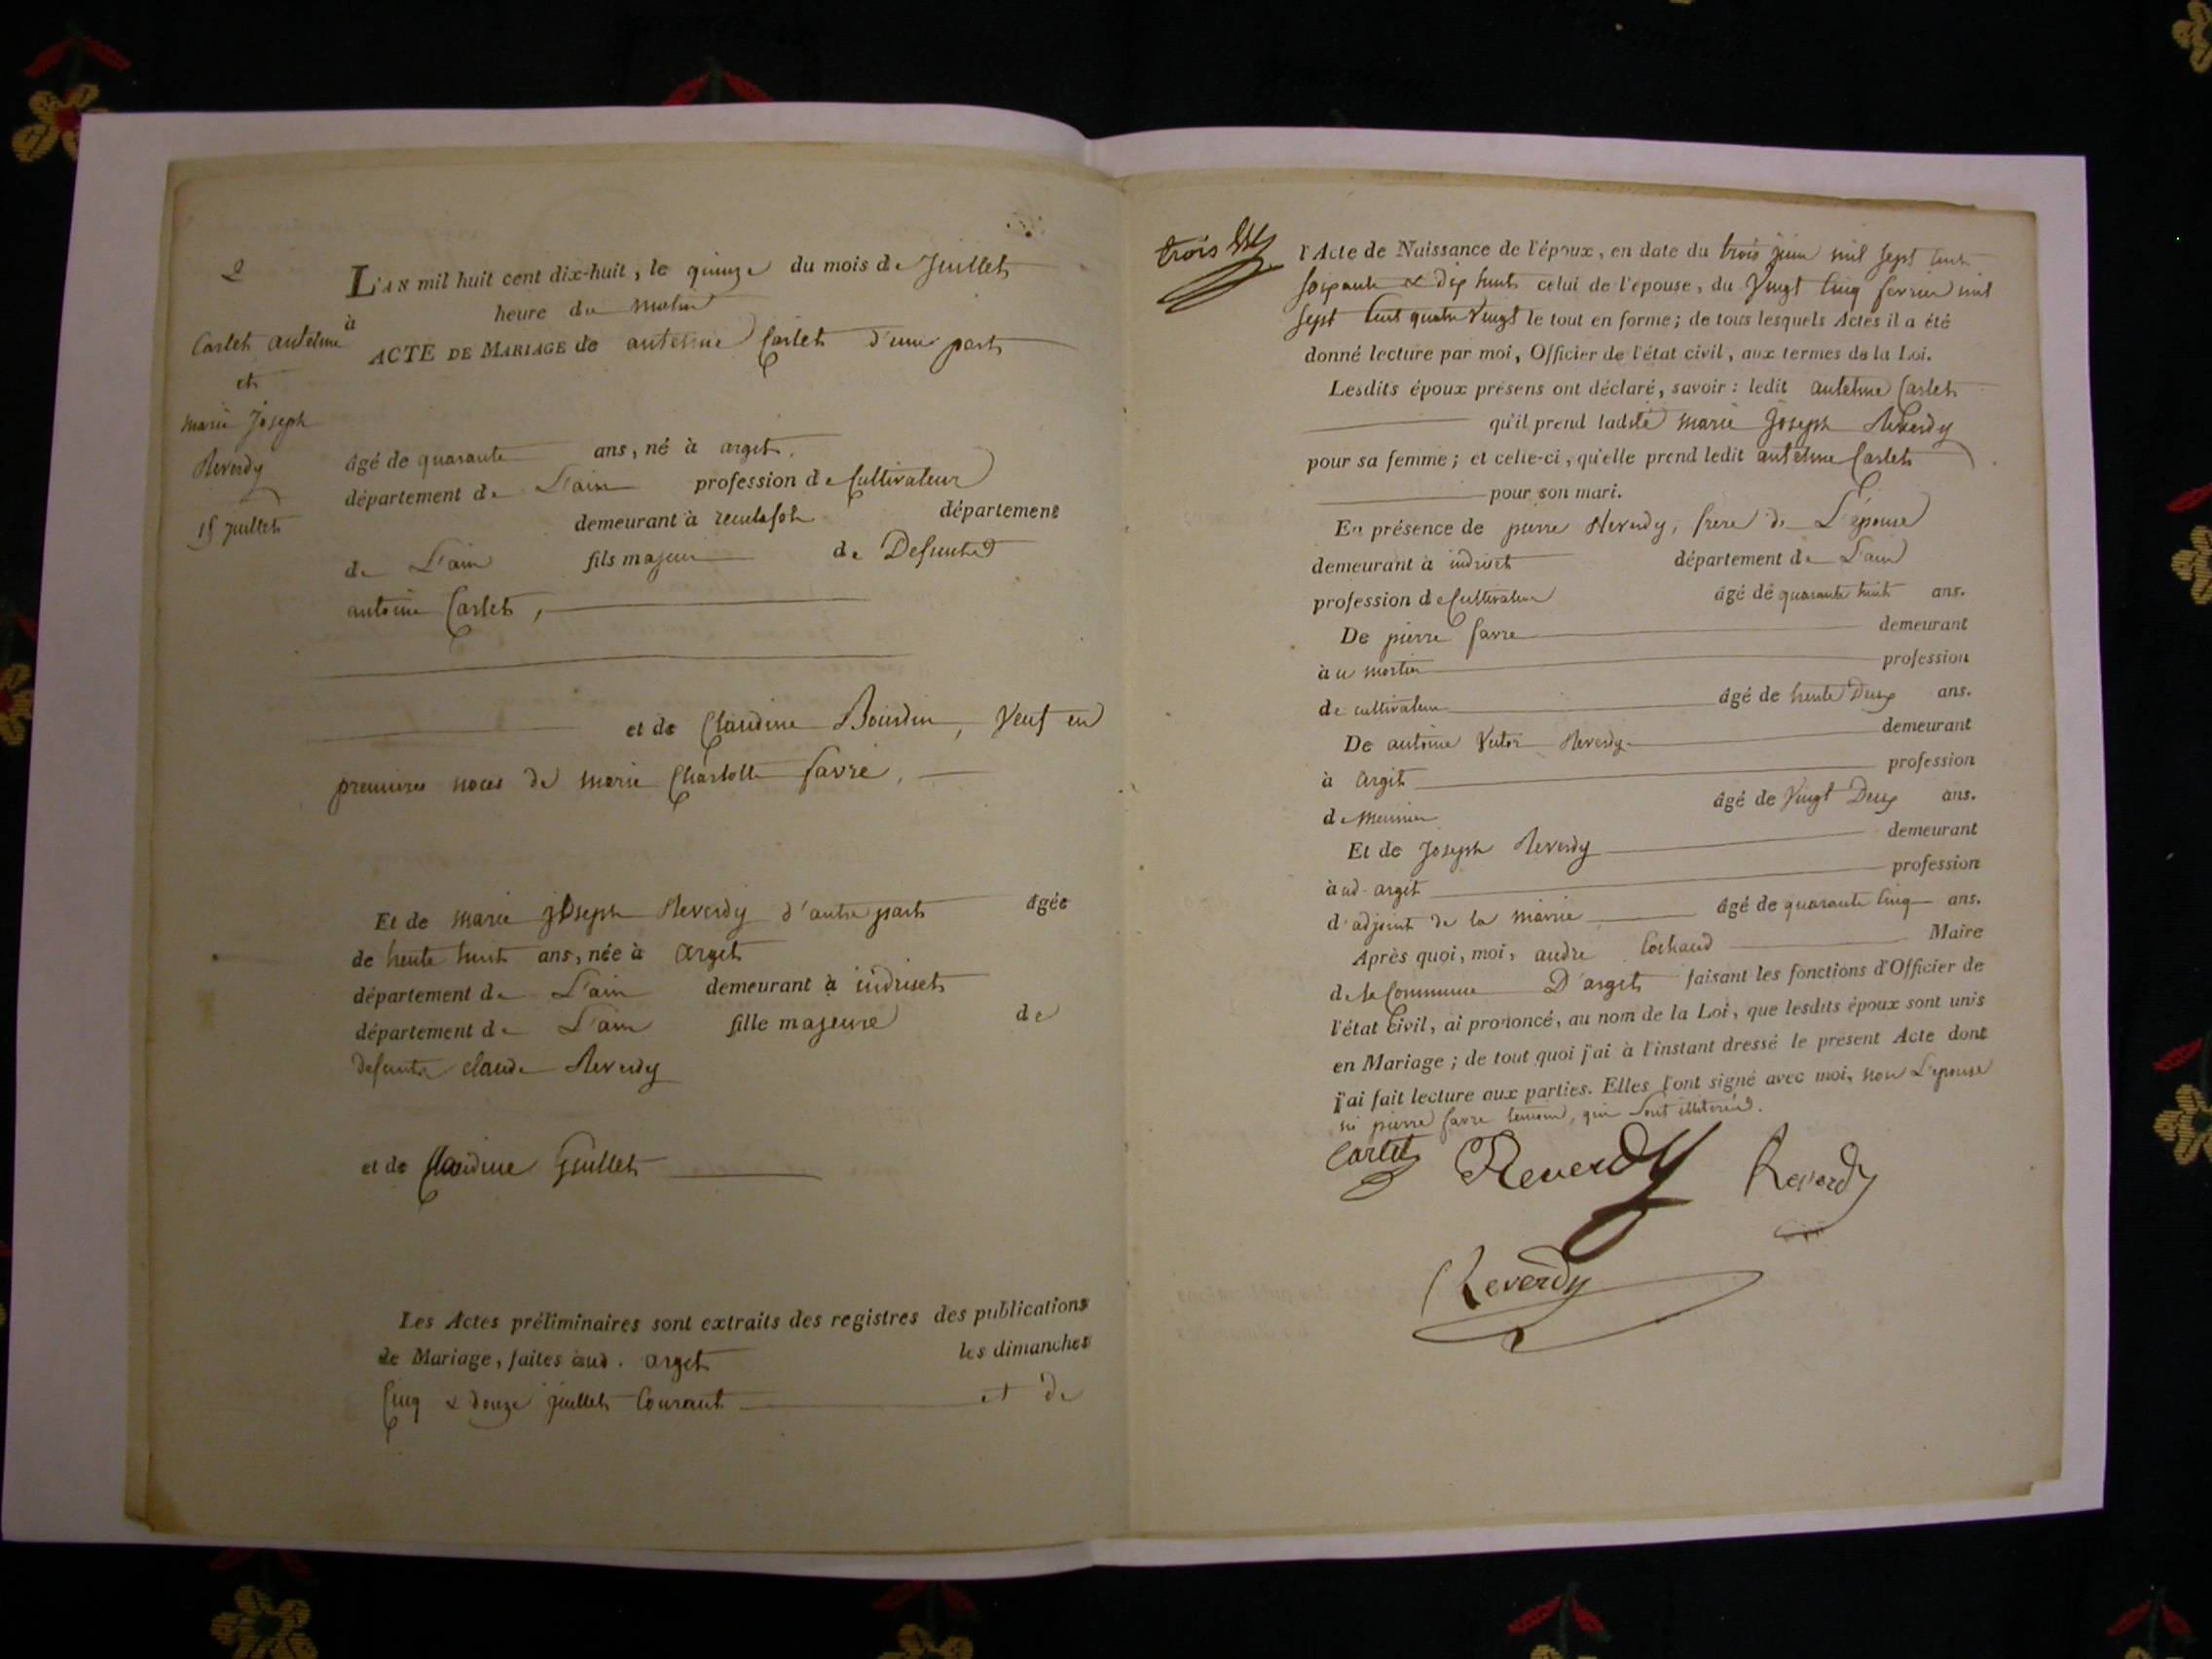 2
Carlet antelme
et
marie Joseph
Reverdy
15 juillet
L'AN mil huit cent dix-huit, le quinze du mois de Juillet
à heure du matin
ACTE DE MARIAGE de antelme Carlet d'une part
âgé de quarante ans, né à arget.
département de L'ain profession de Cultivateur
demeurant à reculafol département
de L'ain fils majeur de Defunt
antoine Carlet,
et de Claudine Bourdin, Veuf en
premieres noces de marie Charlotte favre,
Et de marie joseph Reverdy d'autre part âgée
de trente huit ans, née à arget
département de L'ain demeurant à indriset
département de L'ain fille majeure de
defunt claude Reverdy
et de Claudine Guillet
Les Actes préliminaires sont extraits des registres des publications
de Mariage, faites aud. arget les dimanches
Cinq & douze juillet Courant et de
trois
l'Acte de Naissance de l'époux, en date du trois juin mil sept cent
soixante & dix huit celui de l'épouse, du Vingt Cinq fevrier mil
sept Cent quatre Vingt le tout en forme; de tous lesquels Actes il a été
donné lecture par moi, Officier de l'état civil, aux termes de la Loi.
Lesdits époux présens ont déclaré, savoir : ledit antelme Carlet
qu'il prend ladite marie Joseph Reverdy
pour sa femme; et celle-ci, qu'elle prend ledit antelme Carlet
pour son mari.
En présence de pierre Reverdy, frere de L'épouse
demeurant à indriset département de L'ain
profession de Cultivateur âgé de quarante huit ans.
De pierre favre demeurant
à u mortier profession
de cultivateur âgé de trente Deux ans.
De antoine Victor Reverdy demeurant
à Arget profession
de meunier âgé de Vingt Deux ans.
Et de Joseph Reverdy demeurant
à ud. arget profession
d'adjoint de la mairie âgé de quarante Cinq ans.
Après quoi, moi, andre Cochaud Maire
de la Commune D'arget faisant les fonctions d'Officier de
l'état Civil, ai prononcé, au nom de la Loi, que lesdits époux sont unis
en Mariage; de tout quoi j'ai à l'instant dressé le présent Acte dont
j'ai fait lecture aux parties. Elles l'ont signé avec moi, non L'epouse
ni pierre favre temoin, qui sont illiterés.
Carlet Reverdy Reverdy
Reverdy